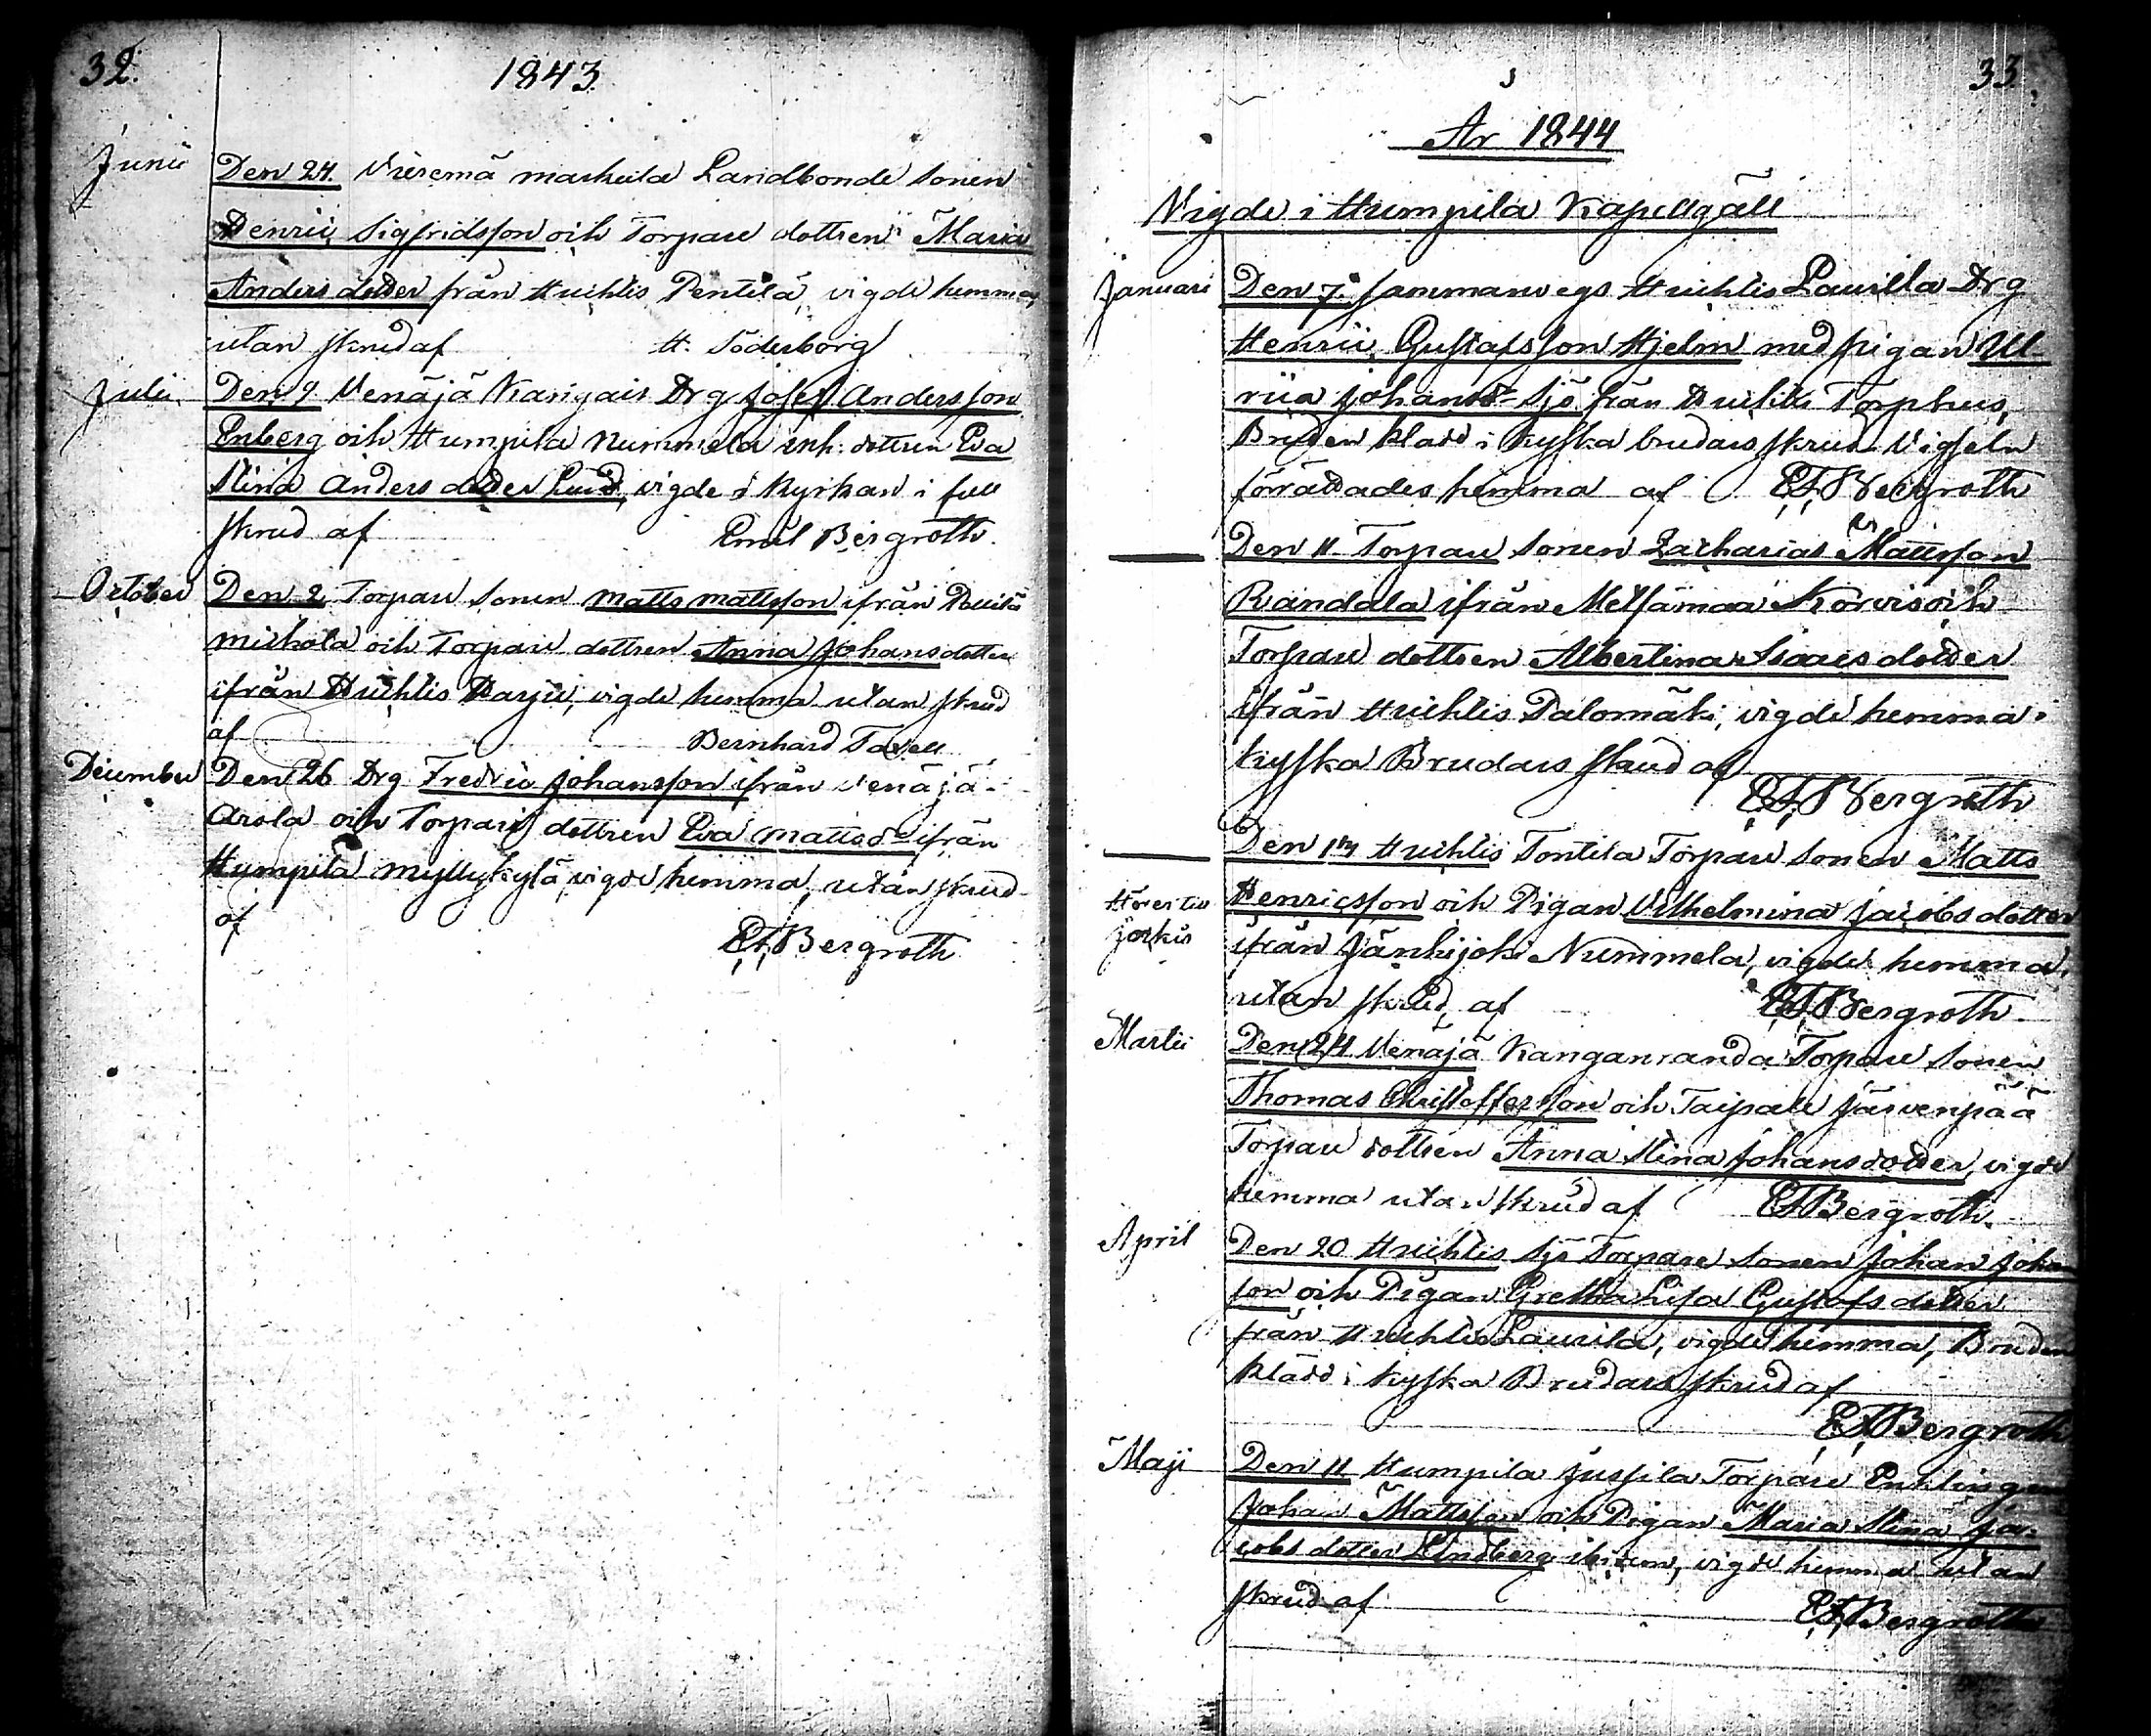 32.
1843.
Junii
Den 24. Vieremä markula Landbonde sonen
Henric Sigfridsson och Torpare dottren Maria
Anders dotter från Huhtis Pentilä, vigde hemma
utan skrud af H. Söderborg
Julii
Den 9 Venäjä Kangais Drg Josef Andersson
Enberg och Humpila Nummela inh. dottren Eva
Stina Anders dotter Lund, vigde i Kyrkan i full
skrud af Emil Bergroth.
October
Den 2 Torpare sonen Matts Mattsson ifrån
Mickola och Torpare dottren Anna Johansdotter
ifrån Huhtis Harju, vigde hemma utan skrud
af Bernhard Taxell
December
Den 26 Drg Fredric Johansson ifrån Venäjä
Arola och Torpare dottren Eva Mattsdr ifrån
Humpila Myllykylä vigde hemma, utan skrud
af
EFBergroth
33.
År 1844
Vigde i Humpila Kapellgäll
Januari
Den 7. sammanvegs Huhtis Laurila Drg
Henric Gustafsson Hjelm med pigan Ul-
rica Johansdr Sjö från Huhtis Torphus,
Bruden klädd i kyska brudars skrud. Vigseln
förrättades hemma af EFBergroth
Den 11 Torpare sonen Zacharias Mattsson
Randala ifrån Metsämaa Korvis och
Torpare dottren Albertina Isaacs dotter
ifrån Huhtis Palomäki, vigde hemma i
kyska Brudars skrud af
EFBergroth
Den 14 Huhtis Tontila Torpare sonen Matts
Henricsson och Pigan Vilhelmina Jacobs dotter
ifrån Jänhijoki Nummela, vigde hemma
utan skrud, af EFBergroth
Martii
Den 24 Venäjä Kanganranda Torpare sonen
Thomas Christoffersson och Taipale Järvenpää
Torpare dottren Anna Stina Johansdotter, vigde
hemma utan skrud af EFBergroth.
April
Den 20 Huhtis Sjö Torpare sonen Johan Johan
son och Pigan Gretha Lisa Gustafs dotter
från Huhtis Laurila, vigde hemma, Bruden
klädd i kyska Brudars skrud af
EFBergroth
Maji
Den 11 Humpila Jussila Torpare Enklingen
Johan Mattsson och Pigan Maria Stina Ja-
cobs dotter Lindberg ibidem, vigde hemma utan
skrud af
EFBergroth